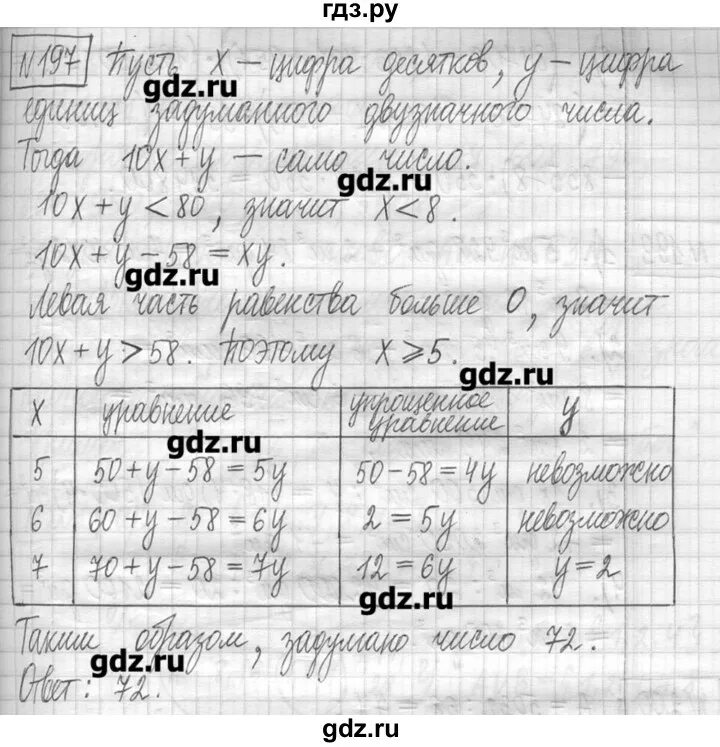 гдз.ру
№197 Пусть x – цифра десятков, y – цифра
gdz.ru
единиц задуманного двузначного числа.
Тогда 10x+y – само число.
gdz.ru
10x+y<80, значит x<8.
10x+y–58=xy.
gdz.ru
Левая часть равенства больше 0, значит
10x+y>58. Поэтому x⩾5.
gdz.ru
x уравнение упрощенное уравнение y
gdz.ru
5 50+y–58=5y 50–58=4y невозможно
6 60+y–58=6y 2=5y невозможно
7 70+y–58=7y 12=6y y=2
gdz.ru
Таким образом, задумано число 72.
gdz.ru
Ответ: 72.
gdz.ru